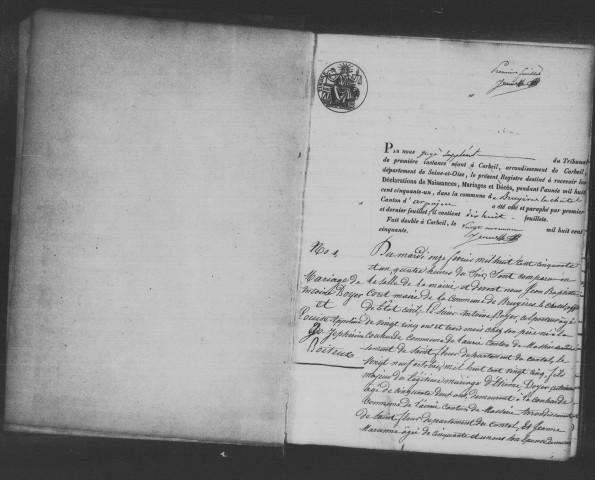 Premier feuillet
PAR nous juge suppléant du Tribunal
de première instance séant à Corbeil, arrondissement de Corbeil,
département de Seine-et-Oise, le présent Registre destiné à recevoir les
Déclarations de Naissances, Mariages et Décès, pendant l'année mil huit
cent cinquante-un, dans la commune de Bruyère le châtel
Canton d'arpajon a été coté et paraphé par premier
et dernier feuillet; il contient dix huit feuillets.
Fait double à Corbeil, le vingt novembre mil huit cent
cinquante.
No 1
Mariage de
Antoine Boyer
et
Louise
Joséphine
Du mardi onze février mil huit cent cinquante
et un, quatre heures du soir, Sont comparu en
la salle de la mairie et devant nous Jean Baptiste
maire de la commune de Bruyères le Chatel, officier
de l'état civil, Le sieur Antoine Boyer, âgé
de vingt cinq ans et trois mois chez son père né à la
commune de Laurie Canton de Massiac arrondis
sement de Saint flour département du cantal, le
vingt neuf octobre, mil huit cent vingt cinq, fils
majeur du légitime mariage d'Etienne Boyer
âgé de cinquante deux ans, demeurant à
Commune de Laurie Canton de Massiac arrondissement
de Saint flour département du Cantal, et Jeanne
âgée de cinquante et un ans son épouse